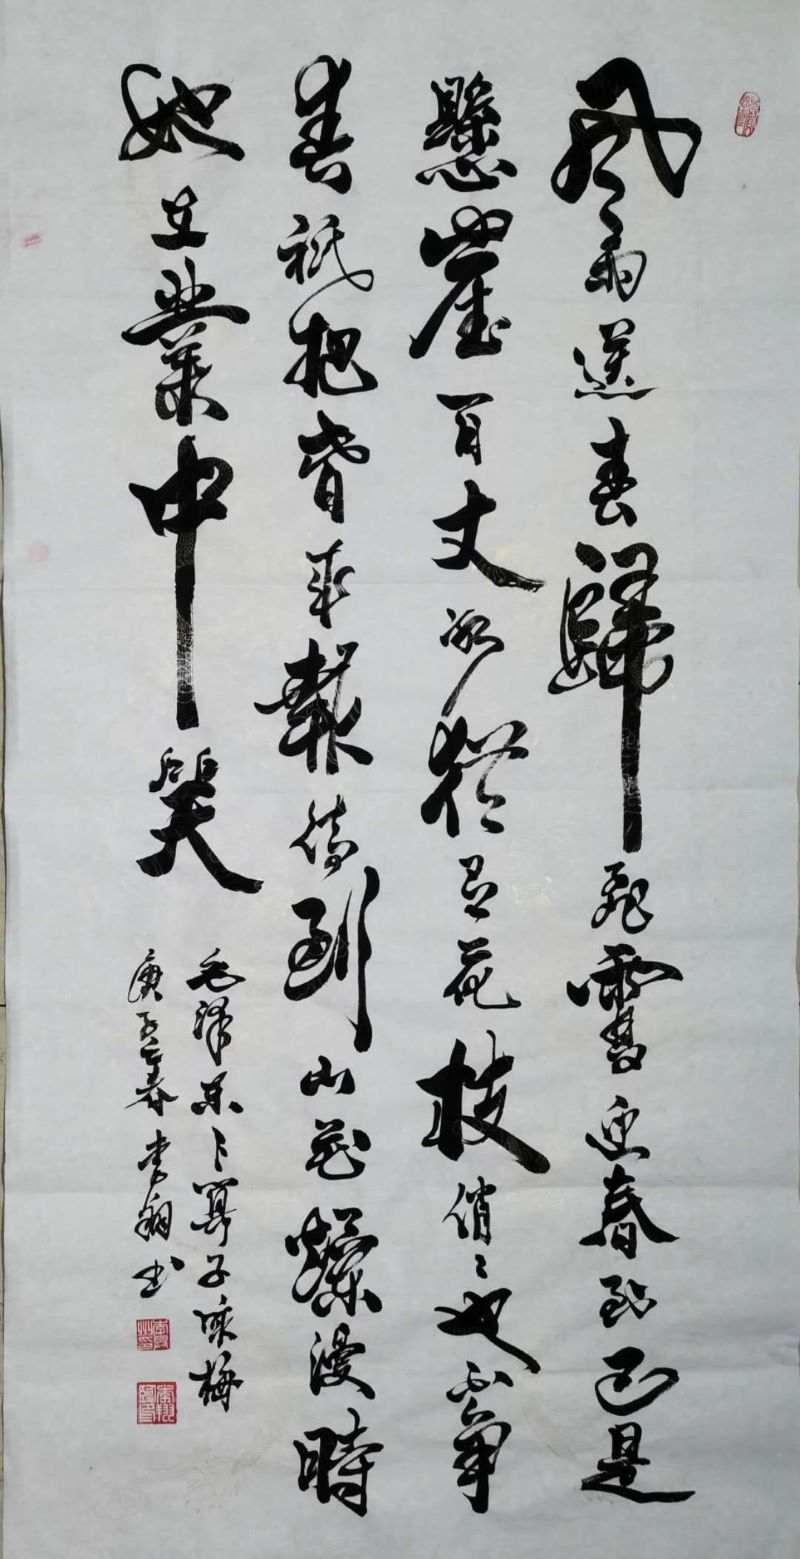 风雨送春歸飛雪迎春到已是
懸崖百丈冰猶有花枝俏〻也不爭
春祇把春来報待到山花爛漫時
她在叢中笑
毛澤东卜算子咏梅
庚子春李翔书